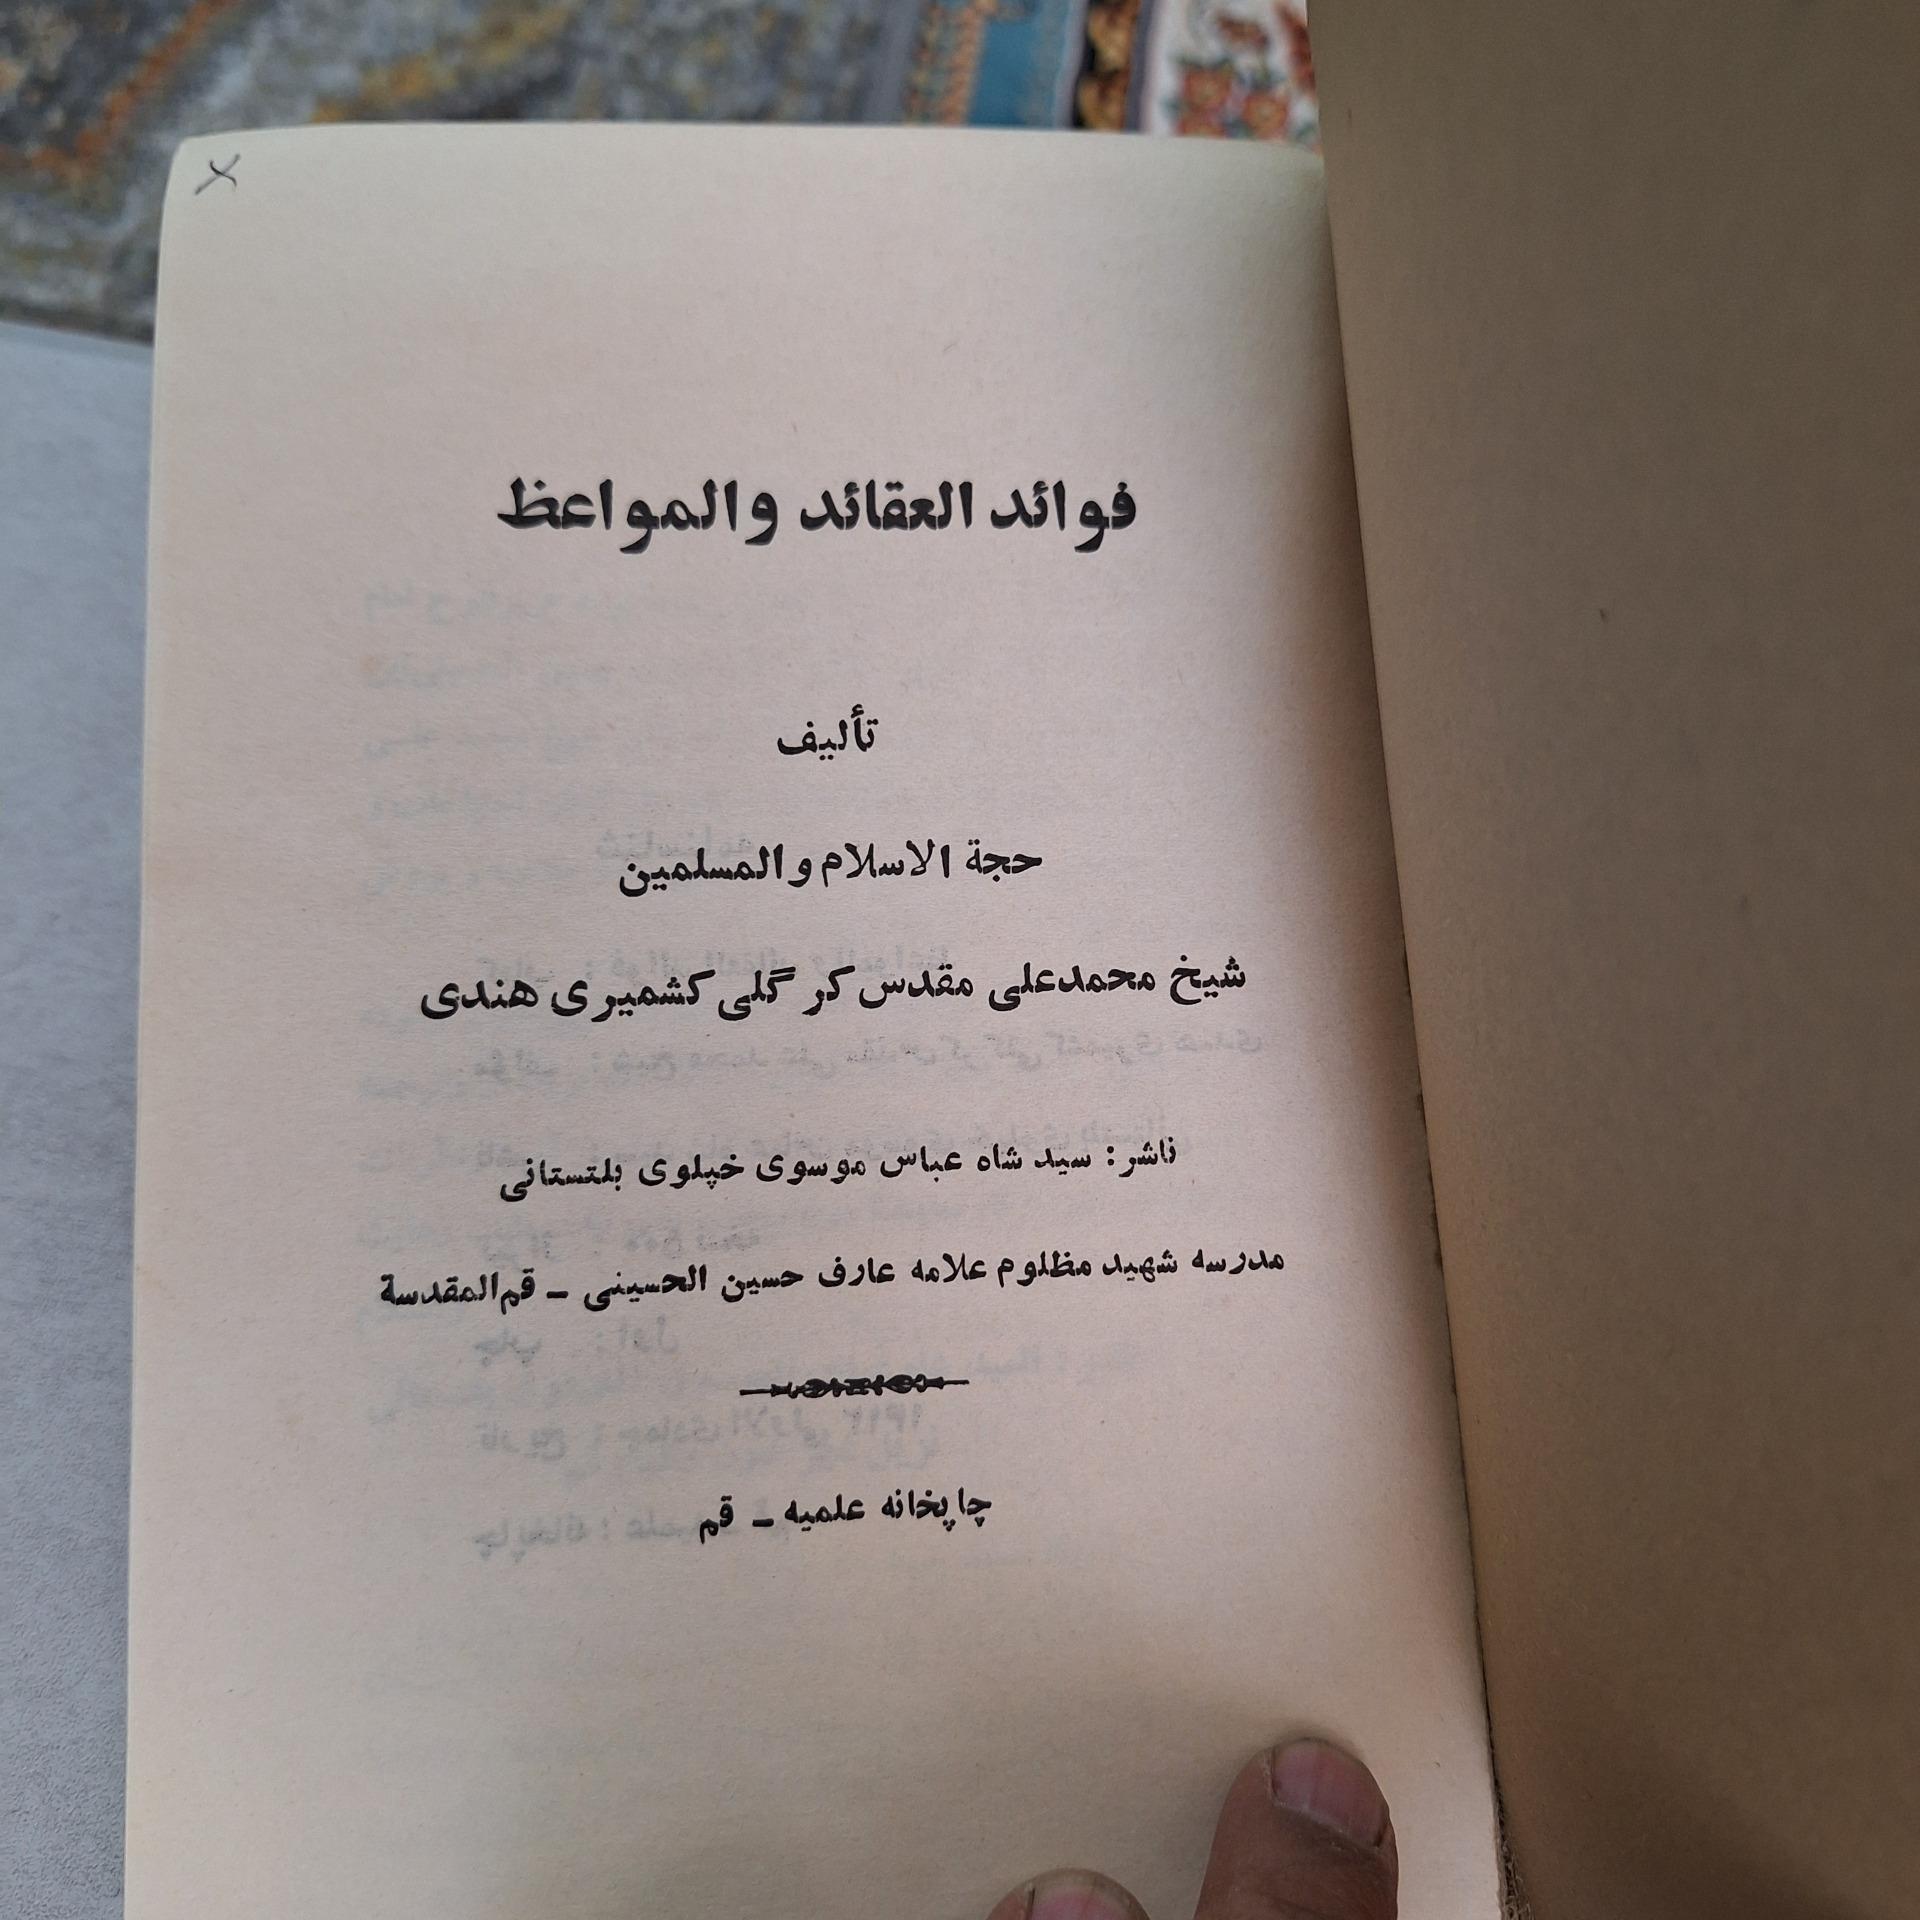 فوائد العقائد والمواعظ
تأليف
حجة الاسلام و المسلمين
شيخ محمدعلى مقدس كر گلى كشميرى هندى
ناشر: سيد شاه عباس موسوى خپلوى بلتستانى
مدرسه شهيد مظلوم علامه عارف حسين الحسينى ـ قم‌المقدسة
چاپخانه علميه ـ قم